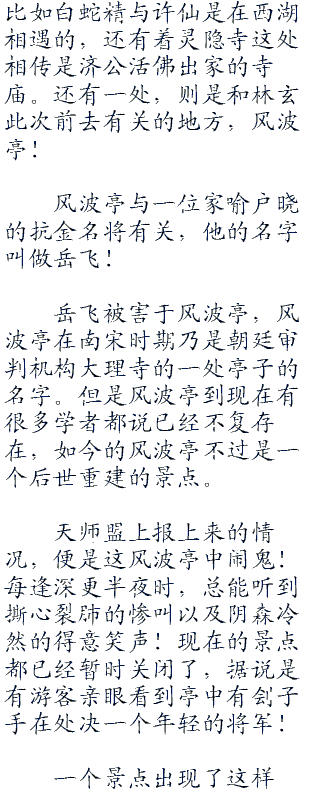 比如白蛇精与许仙是在西湖
相遇的，还有着灵隐寺这处
相传是济公活佛出家的寺
庙。还有一处，则是和林玄
此次前去有关的地方，风波
亭！
风波亭与一位家喻户晓
的抗金名将有关，他的名字
叫做岳飞！
岳飞被害于风波亭，风
波亭在南宋时期乃是朝廷审
判机构大理寺的一处亭子的
名字。但是风波亭到现在有
很多学者都说已经不复存
在，如今的风波亭不过是一
个后世重建的景点。
天师盟上报上来的情
况，便是这风波亭中闹鬼！
每逢深更半夜时，总能听到
撕心裂肺的惨叫以及阴森冷
然的得意笑声！现在的景点
都已经暂时关闭了，据说是
有游客亲眼看到亭中有刽子
手在处决一个年轻的将军！
一个景点出现了这样